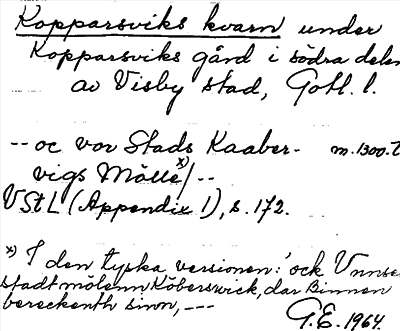 Kopparsviks kvarn under
Kopparsviks gård i södra delen
av Visby stad, Gotl. l.
-- oc vor Stads Kaaber- m. 1300-t
vigs Mölle x)/--
VStL (Appendix 1), s. 172.
x) I den tyska versionen: ock Vnnse
stadt mölenn Köberswick, dar Binnen
bereckenth sinn, ---
G.E. 1964.